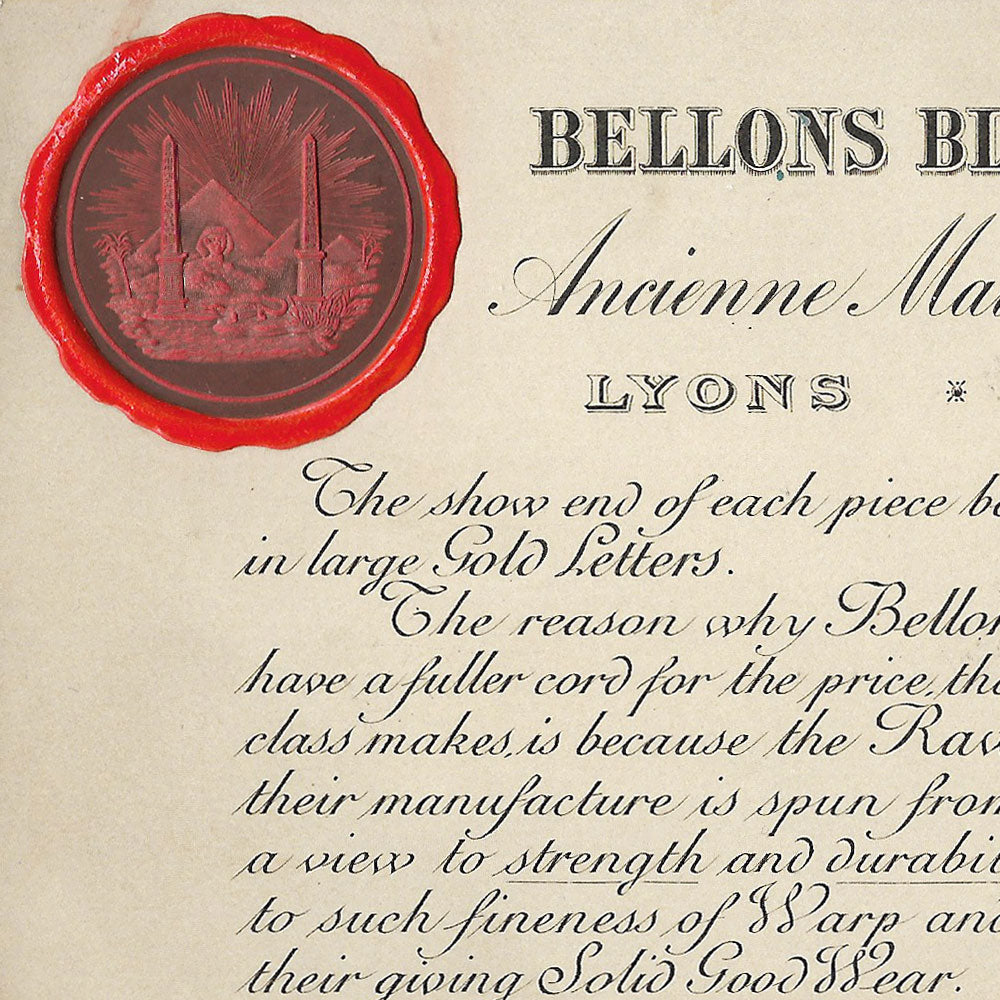 BELLONS
Ancienne
LYONS
The show end of each piece
in large Gold Letters.
The reason why
have a fuller cord for the price,
class makes, is because the
their manufacture is spun
a view to strength and
to such fineness of Warp
their giving Solid Good Wear.